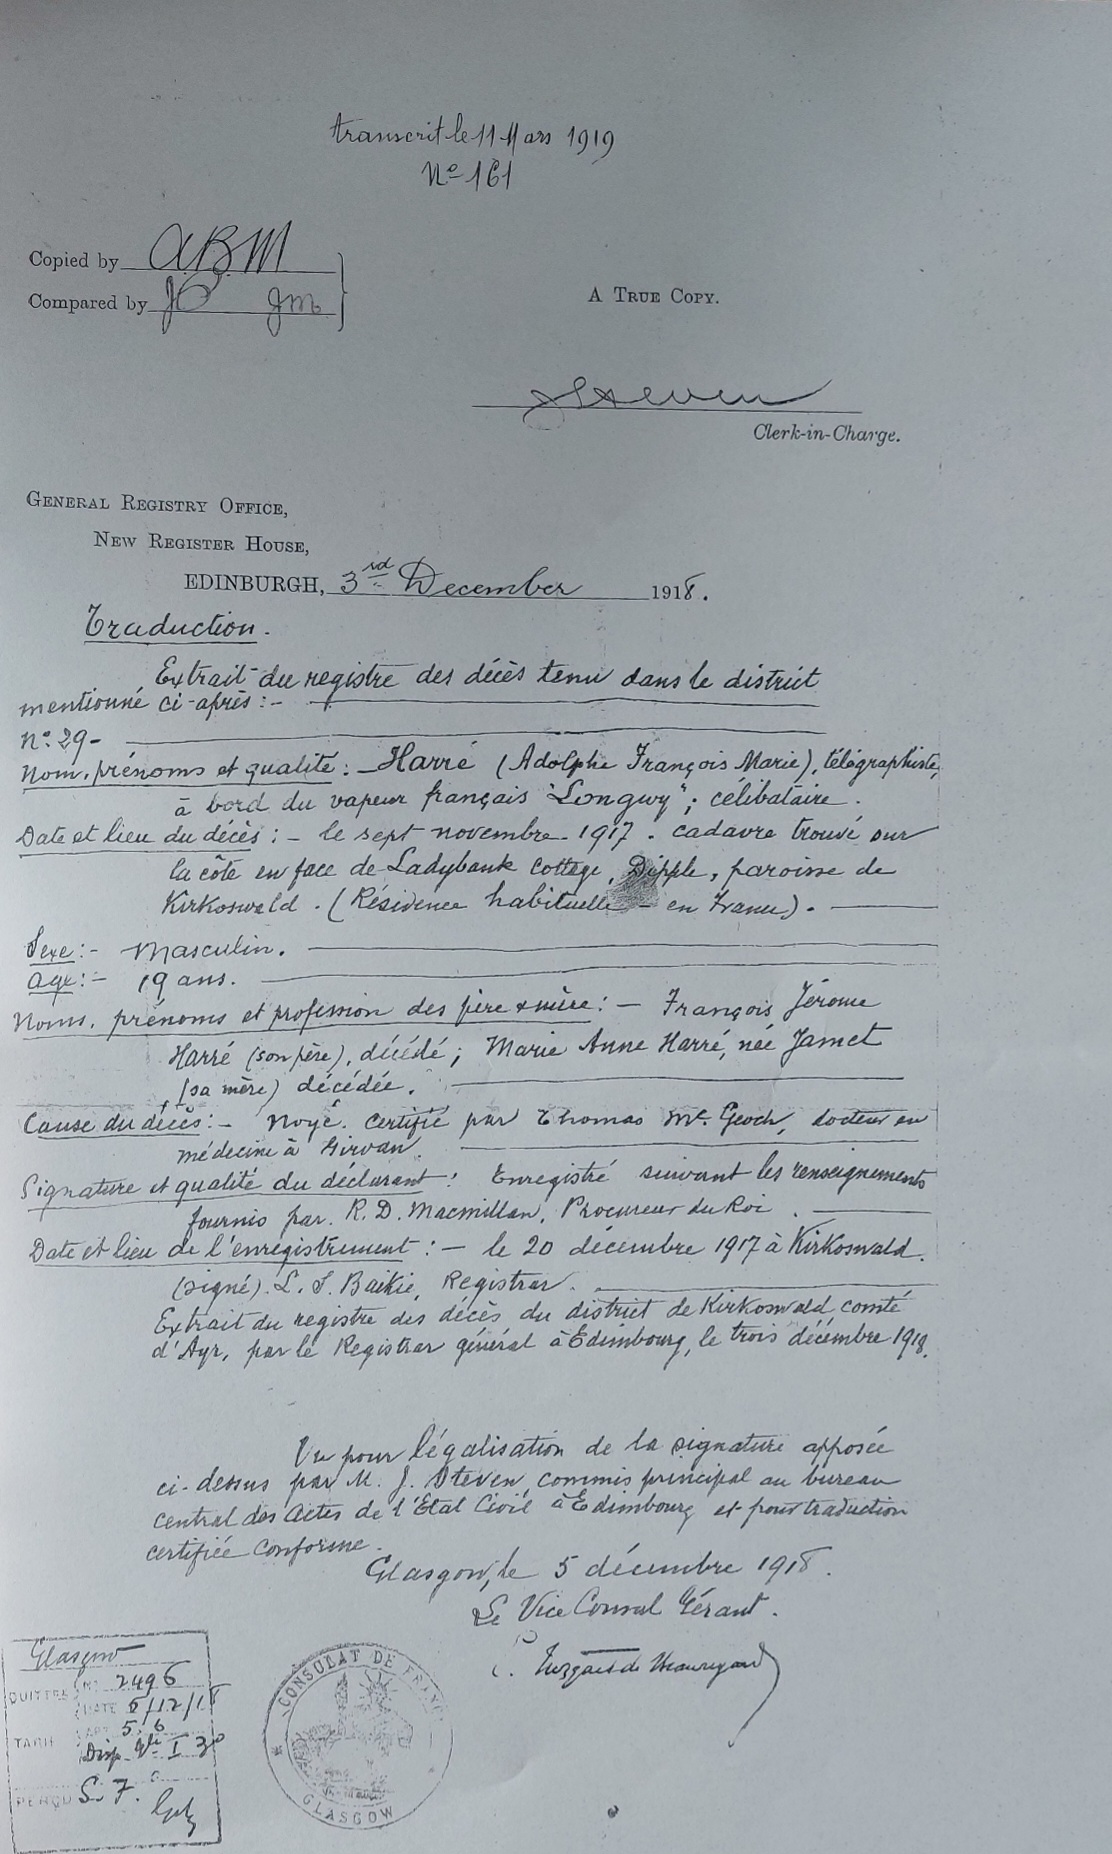 transcrit le 11 Mars 1919
No 161
Copied by A.B.M
Compared by JP Jm
A True Copy.
J Steven
Clerk-in-Charge.
General Registry Office,
New Register House,
EDINBURGH, 3rd December 1918.
Traduction.
Extrait du registre des décès tenu dans le district
mentionné ci-après :-
No. 29 -
Nom, prénoms et qualité : - Harré (Adolphe François Marie), télégraphiste,
à bord du vapeur français "Longwy" ; célibataire.
Date et lieu du décès : - le sept novembre 1917. cadavre trouvé sur
la côte en face de Ladybank Cottage, Dipple, paroisse de
Kirkoswald. (Résidence habituelle - en France). -
Sexe :- Masculin.
Age :- 19 ans.
Noms, prénoms et profession des père & mère : - François Jérome
Harré (son père), décédé ; Marie Anne Harré, née Jamet
(sa mère) décédée.
Cause du décès :- Noyé. Certifié par Thomas Mc. Geoch, docteur en
médecine à Girvan.
Signature et qualité du déclarant : Enregistré suivant les renseignements
fournis par R. D. Macmillan, Procureur du Roi.
Date et lieu de l'enregistrement : - le 20 décembre 1917 à Kirkoswald.
(signé). L. S. Baikie, Registrar.
Extrait du registre des décès du district de Kirkoswald comté
d'Ayr, par le Registrar général à Edimbourg, le trois décembre 1918.
Vu pour légalisation de la signature apposée
ci-dessus par M. J. Steven, commis principal au bureau
central des Actes de l'Etat Civil à Edimbourg et pour traduction
certifiée conforme.
Glasgow, le 5 décembre 1918.
Le Vice Consul Gérant.
Glasgow
QUITTCE No 2496
DATE 5/12/18
TARIF ART 5. 6
PERÇU
CONSULAT DE FRANCE
GLASGOW